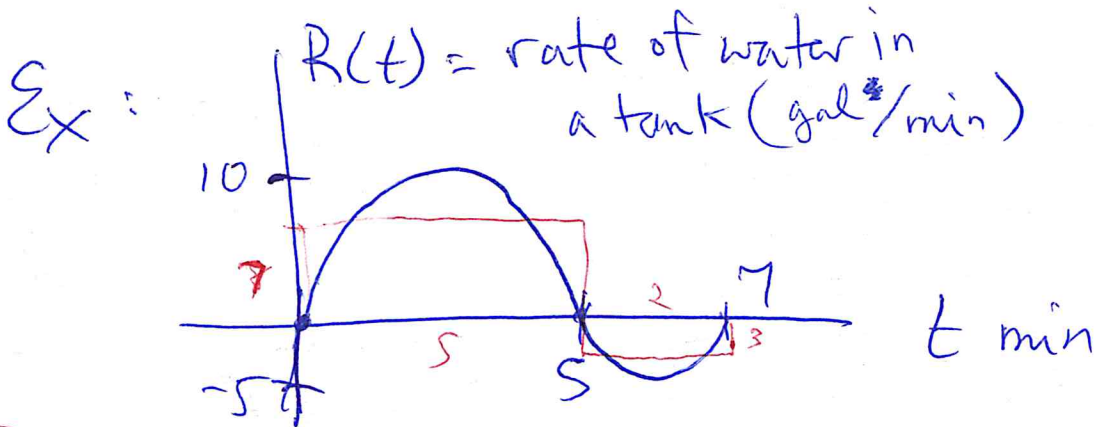 Ex: R(t) = rate of water in
a tank (gal/min)
10
7
2 7
5 3 t min
5
-5